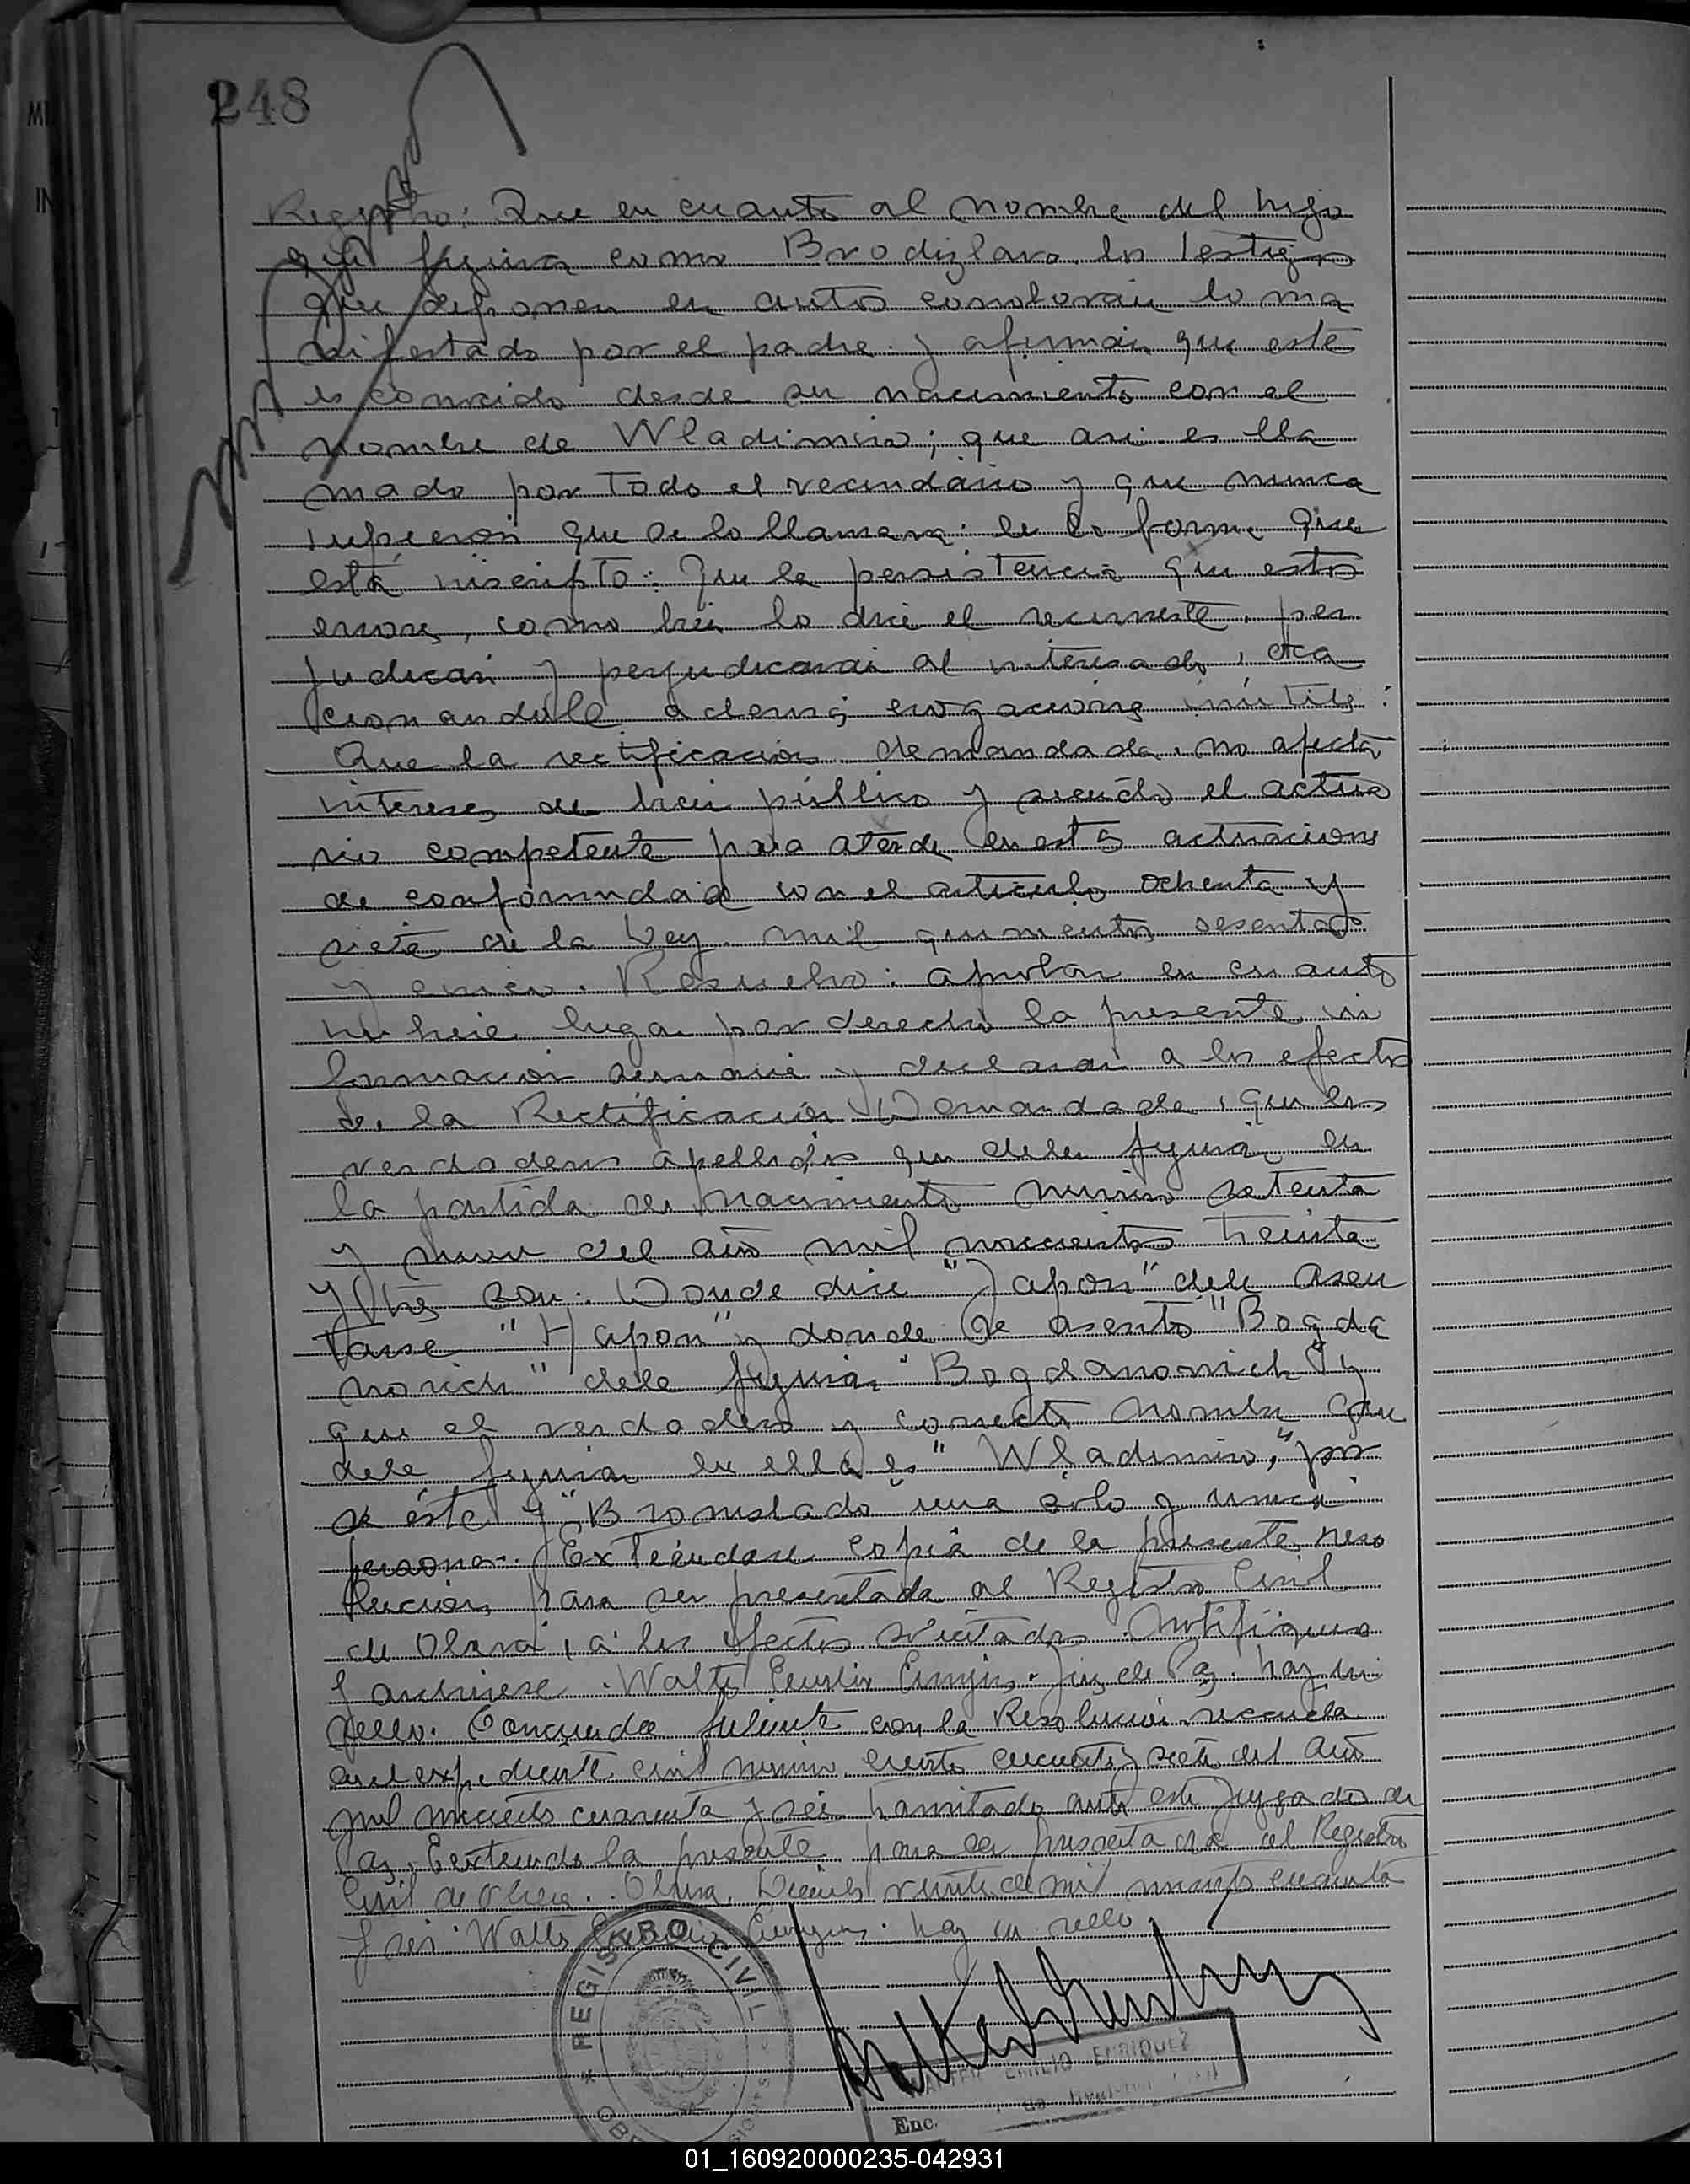 248
Registro: Que en cuanto al nombre del hijo
que figura como Brodizlavo, los testigos
que deponen en autos corroboran lo ma
nifestado por el padre y afirman que este
es conocido desde su nacimiento con el
nombre de Wladimiro; que asi es lla
mado por todo el vecindario y que nunca
supieron que se lo llamara en la forma que
está inscripto: Que la persistencia que estos
errores, como bien lo dice el recurrente, per
judican y perjudicaran al interesado, oca
cionandole además erogaciones inútiles:
Que la rectificación demandada, no afecta
intereses de bien público y siendo el actua
rio competente para atender en estas actuaciones
de conformidad con el articulo ochenta y
siete de la Ley mil quinientos sesenta
y cinco. Resuelvo: aprobar en cuanto
hubiere lugar por derecho la presente in
formación sumaria y declarar a los efectos
de la Rectificación Demandada, que los
verdaderos apellidos que deben figurar en
la partida de nacimiento número setenta
y nueve del año mil novecientos treinta
y tres son: Donde dice "Japon" debe asen
tarse "Hapon" y donde se asentó "Bogda
norich" debe figurar "Bogdanowich" y
que el verdadero y correcto nombre que
debe figurar en ella es "Wladimiro," por
se éste y "Bronislado" una sola y unica
persona. Extiéndase copia de la presente reso
lución para ser presentada al Registro Civil
de Oberá, a los efectos solicitados. Notifiquese
y archivese. Walter Emilio Enriquez. Juez de Paz. hay un
sello. Concuerda fielmente con la Resolución recaida
en el expediente civil número ciento cincuenta y siete del año
mil novecientos cuarenta y seis tramitado ante este Juzgado de
Paz. Extiendo la presente para ser presentada al Registro
Civil de Oberá. Oberá, Diciembre veinte de mil novecientos cuarenta
y seis. Walter Emilio Enriquez. hay un sello.
REGISTRO CIVIL
WALTER EMILIO ENRIQUEZ
Enc.
01_160920000235-042931